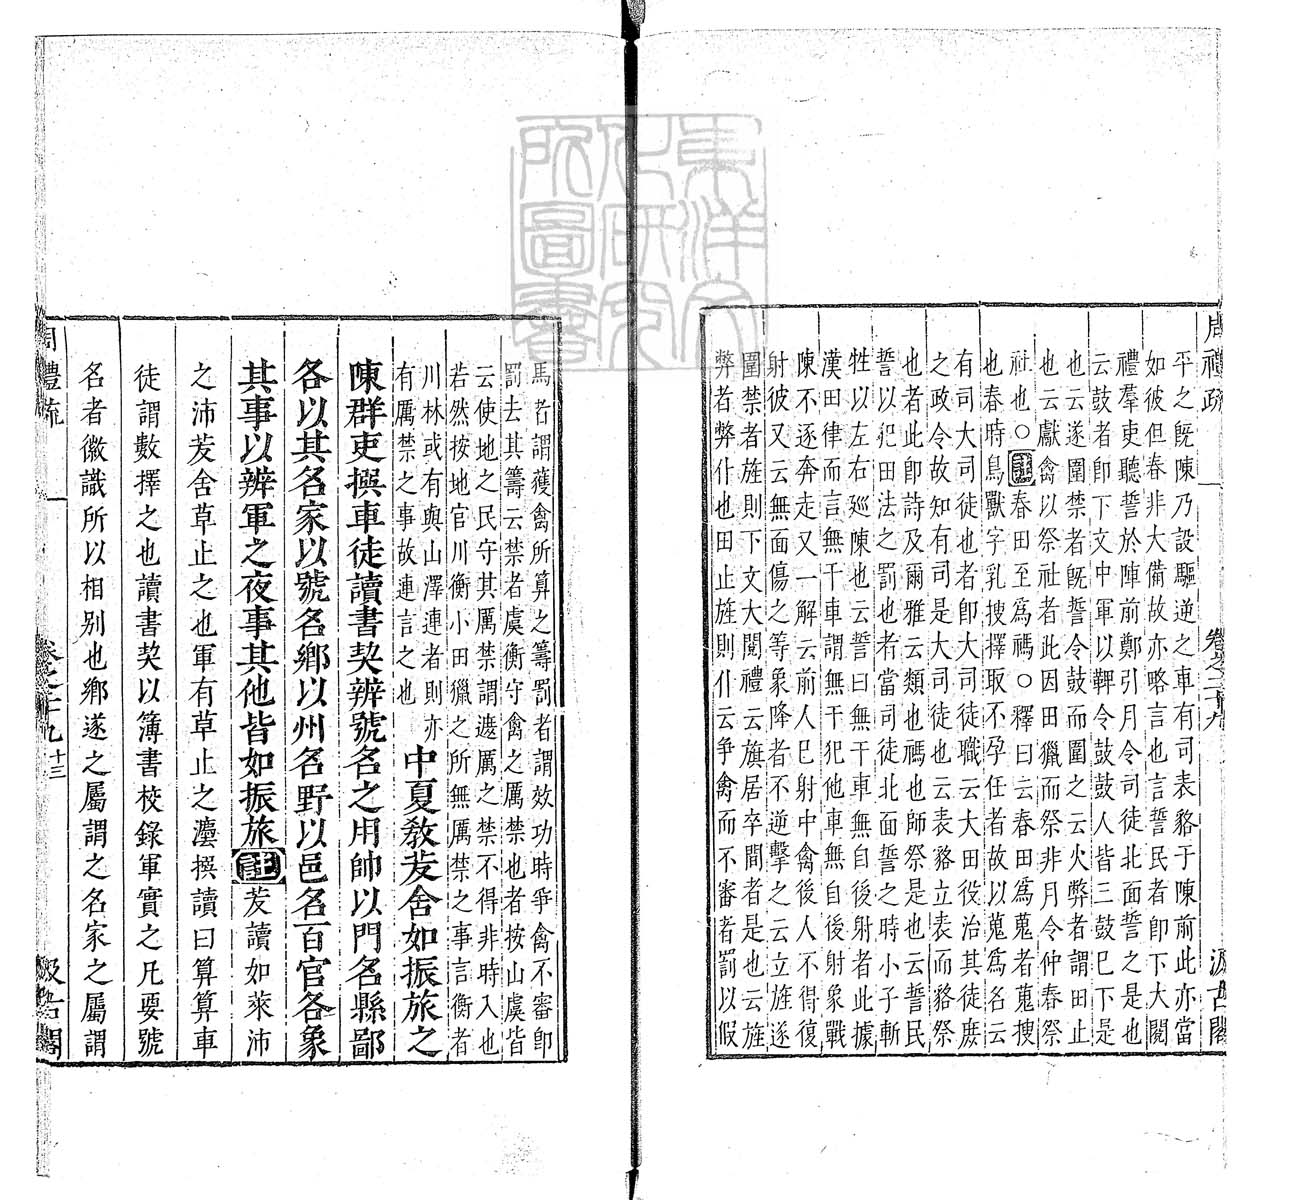 周禮疏 卷之二十九 汲古閣
平之旣陳乃設驅逆之車有司表貉于陳前此亦當
如彼但春非大備故亦略言也言誓民者卽下大閱
禮羣吏聽誓於陣前鄭引月令司徒北面誓之是也
云鼓者卽下文中軍以鞞令鼓鼓人皆三鼓巳下是
也云遂圍禁者旣誓令鼓而圍之云火弊者謂田止
也云獻禽以祭社者此因田獵而祭非月令仲春祭
社也○註春田至爲禡○釋曰云春田爲蒐者蒐搜
也春時鳥獸字乳搜擇取不孕任者故以蒐爲名云
有司大司徒也者卽大司徒職云大田役治其徒庶
之政令故知有司是大司徒也云表貉立表而貉祭
也者此卽詩及爾雅云類也禡也師祭是也云誓民
誓以犯田法之罰也者當司徒北面誓之時小子斬
牲以左右廵陳也云誓曰無干車無自後射者此據
漢田律而言無干車謂無干犯他車無自後射象戰
陳不逐奔走又一解云前人巳射中禽後人不得復
射彼又云無面傷之等象降者不逆擊之云立旌遂
圍禁者旌則下文大閱禮云旗居卒間者是也云旌
弊者弊仆也田止旌則仆云争禽而不審者罰以假
馬者謂獲禽所算之籌罰者謂效功時爭禽不審卽
罰去其籌云禁者虞衡守禽之厲禁也者按山虞皆
云使地之民守其厲禁謂遮厲之禁不得非時入也
若然按地官川衡小田獵之所無厲禁之事言衡者
川林或有與山澤連者則亦
有厲禁之事故連言之也
中夏敎茇舍如振旅之
陳群吏撰車徒讀書契辨號名之用帥以門名縣鄙
各以其名家以號名鄉以州名野以邑名百官各象
其事以辨軍之夜事其他皆如振旅註茇讀如萊沛
之沛茇舍草止之也軍有草止之灋撰讀曰算算車
徒謂數擇之也讀書契以簿書校錄軍實之凡要號
名者徽識所以相别也鄉遂之屬謂之名家之屬謂
周禮疏 卷之二十九 十三 汲古閣
東洋文化研究所圖書